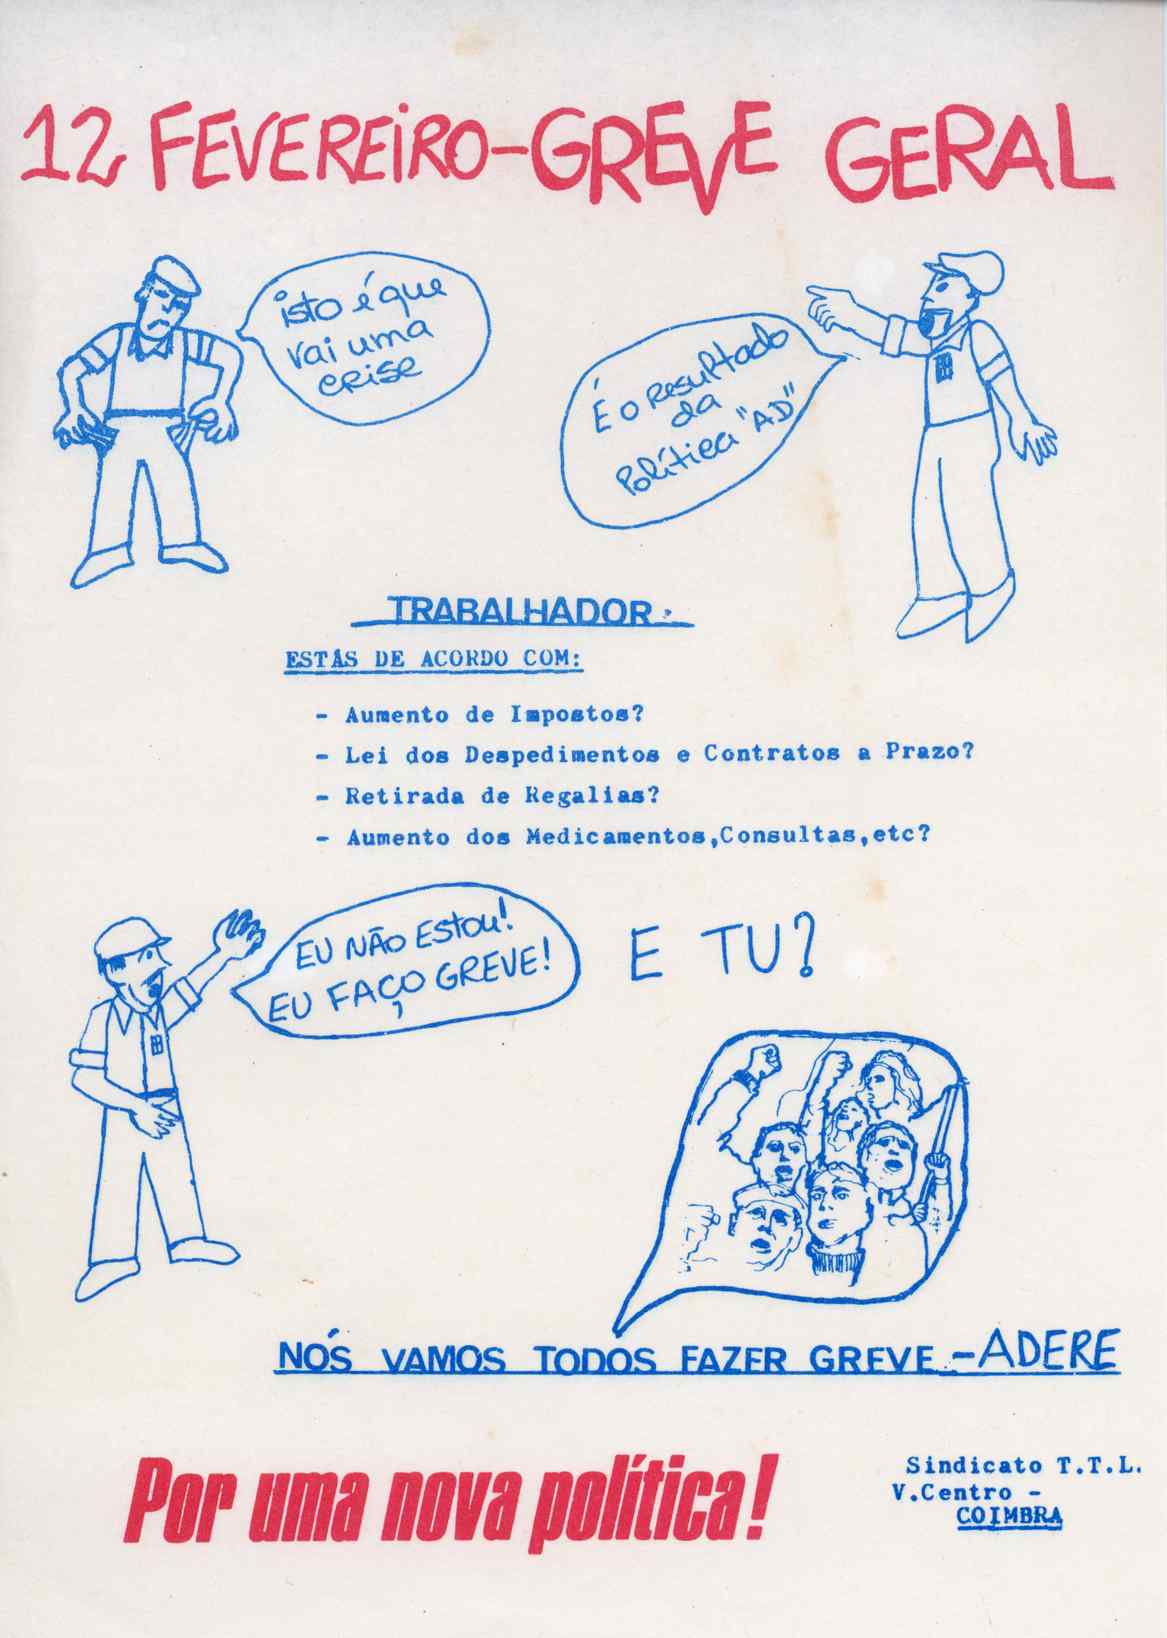 12 FEVEREIRO-GREVE GERAL
isto é que
vai uma
crise
É o resultado
da
Política "AD"
TRABALHADOR:
ESTÁS DE ACORDO COM:
- Aumento de Impostos?
- Lei dos Despedimentos e Contratos a Prazo?
- Retirada de Regalias?
- Aumento dos Medicamentos,Consultas,etc?
EU NÃO ESTOU!
EU FAÇO GREVE!
E TU?
NÓS VAMOS TODOS FAZER GREVE-ADERE
Por uma nova política!
Sindicato T.T.L.
V.Centro -
COIMBRA